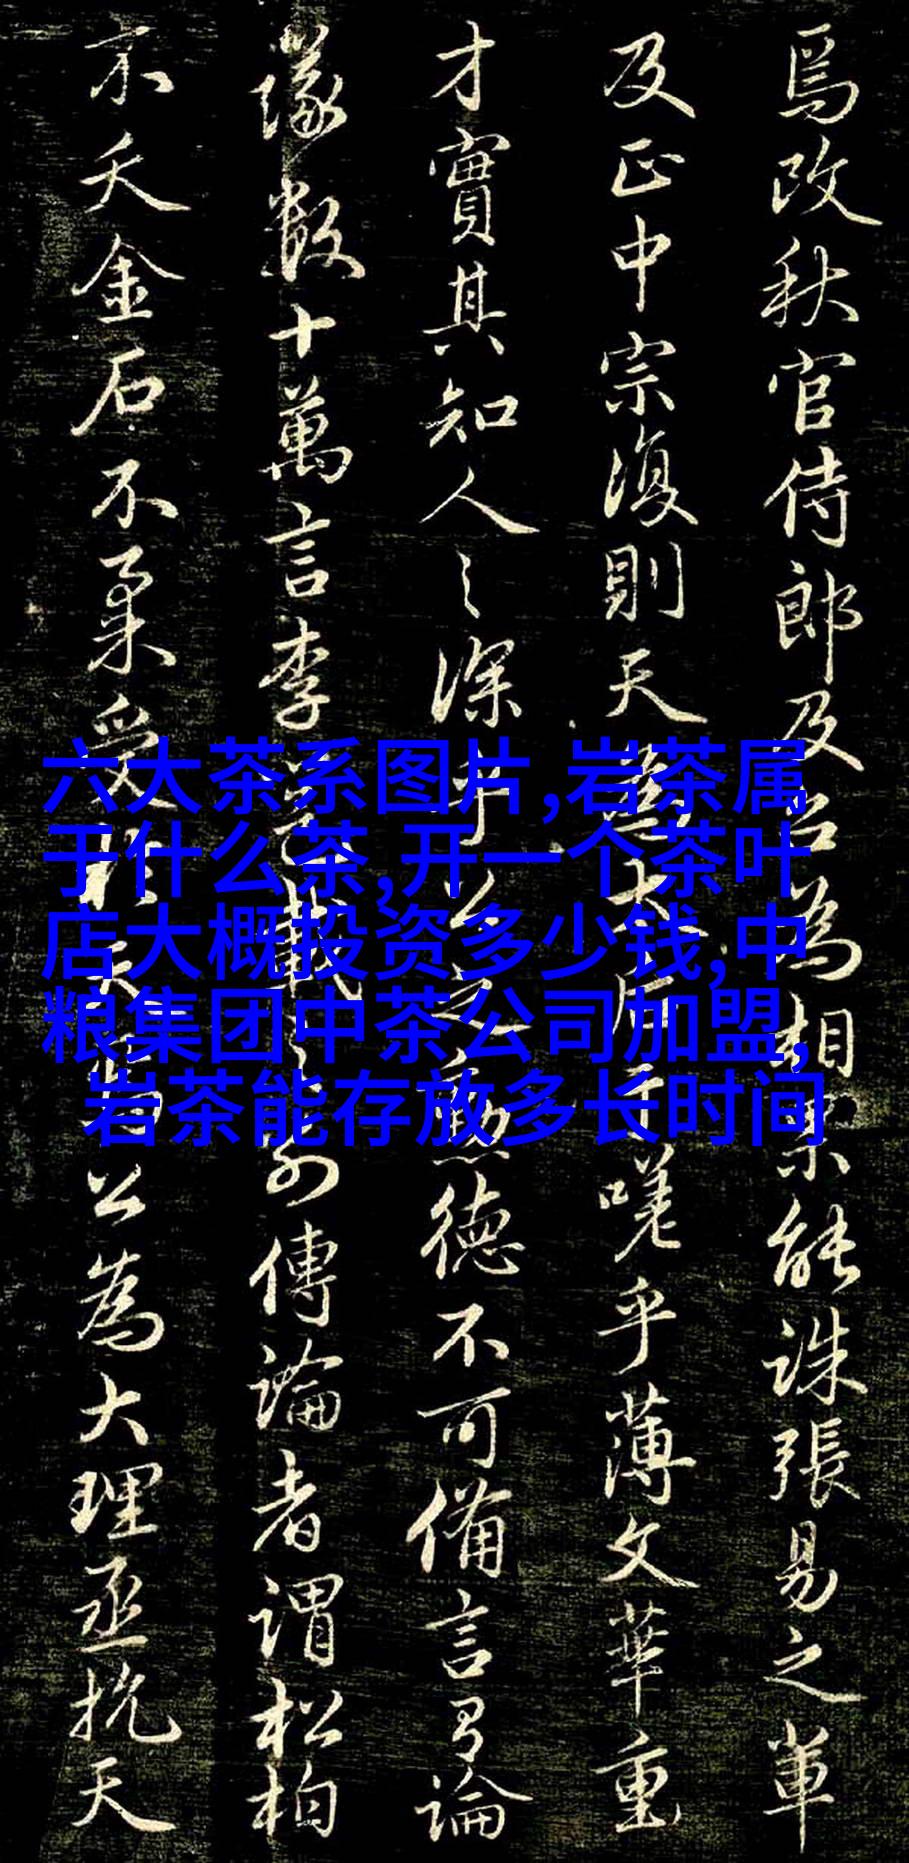 焉改秋官侍郎及公為相果能誅張易之輩
及正中宗復則天為太后于嗟乎薄文華重
才實其知人之深乎公之勳德不可備言有論
議數十萬言李邕載之別傳論者謂松柏
不夭金石不柔受於天焉公為大理丞抗天
六大茶系图片,岩茶属
于什么茶,开一个茶叶
店大概投资多少钱,中
粮集团中茶公司加盟,
岩茶能存放多长时间